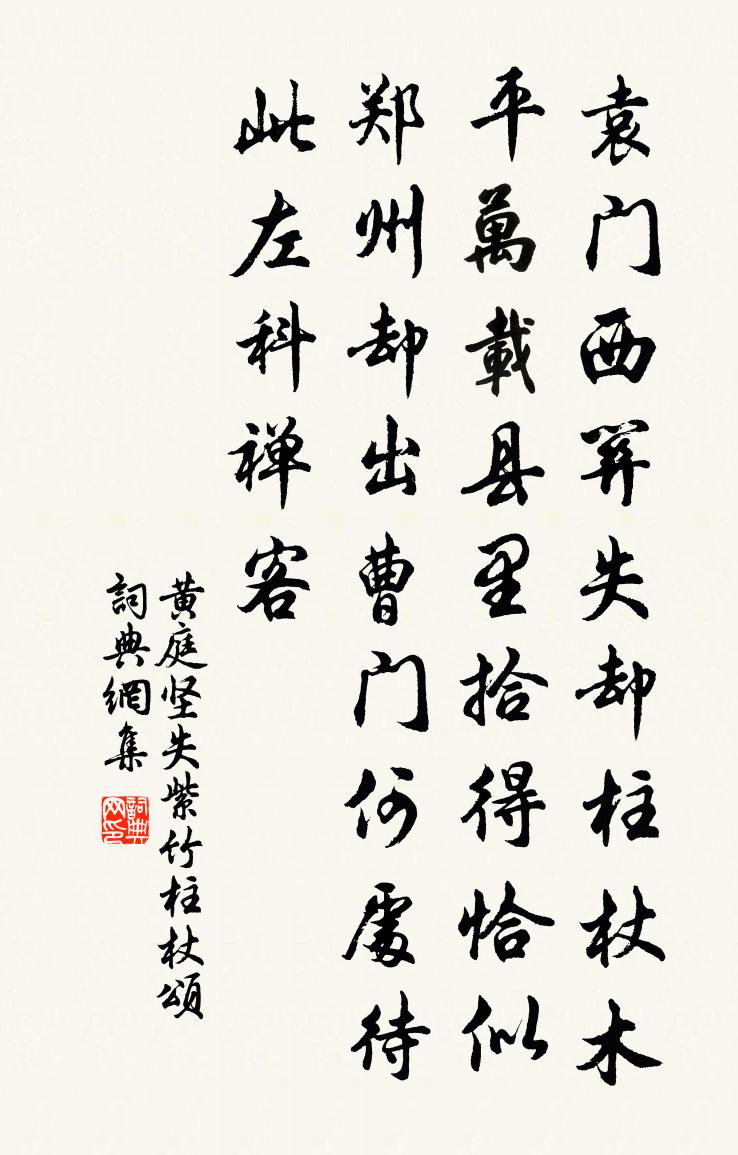 袁门西失却柱杖木
平萬載县里拾得恰似
郑州却出曹门何處待
此左科禅客
黄庭坚失紫竹柱杖頌
詞典網集
詞典
网印